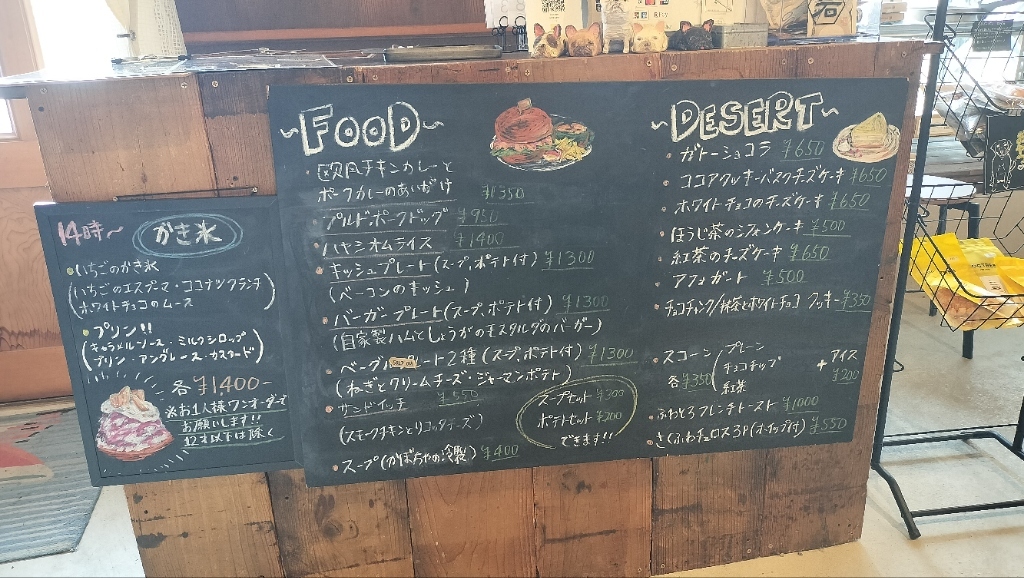 14時〜
かき氷
いちごのかき氷
(いちごのエスプーマ・ココナツクランチ
ホワイトチョコのムース)
プリン!!
(キャラメルソース・ミルクシロップ
プリン・アングレース・カスタード)
各¥1400-
※お1人様ワンオーダーで
お願いします!!
12才以下は除く
~FOOD~
欧風チキンカレーと
ポークカレーのあいがけ ¥1350
プルドポークドッグ ¥950
ハヤシオムライス ¥1400
キッシュプレート(スープ、ポテト付) ¥1300
(ベーコンのキッシュ)
バーガープレート(スープ、ポテト付) ¥1300
(自家製ハムとしょうがのモスタルダのバーガー)
ベーグルプレート2種(スープ、ポテト付) ¥1300
SOLD OUT
(ねぎとクリームチーズ・ジャーマンポテト)
サンドイッチ ¥550
(スモークチキンとリコッタチーズ)
スープ(かぼちゃの冷製) ¥400
スープセット ¥300
ポテトセット ¥200
できます!!
~DESERT~
ガトーショコラ ¥650
ココアクッキーバスクチーズケーキ ¥650
ホワイトチョコのチーズケーキ ¥650
ほうじ茶のシフォンケーキ ¥500
紅茶のチーズケーキ ¥650
アフォガート ¥500
チョコチャンク/抹茶とホワイトチョコ クッキー ¥350
スコーン 各¥350
プレーン
チョコチップ
紅茶
+アイス
¥200
ふわとろフレンチトースト ¥1000
さくふわチュロス3P(ホイップ付) ¥550